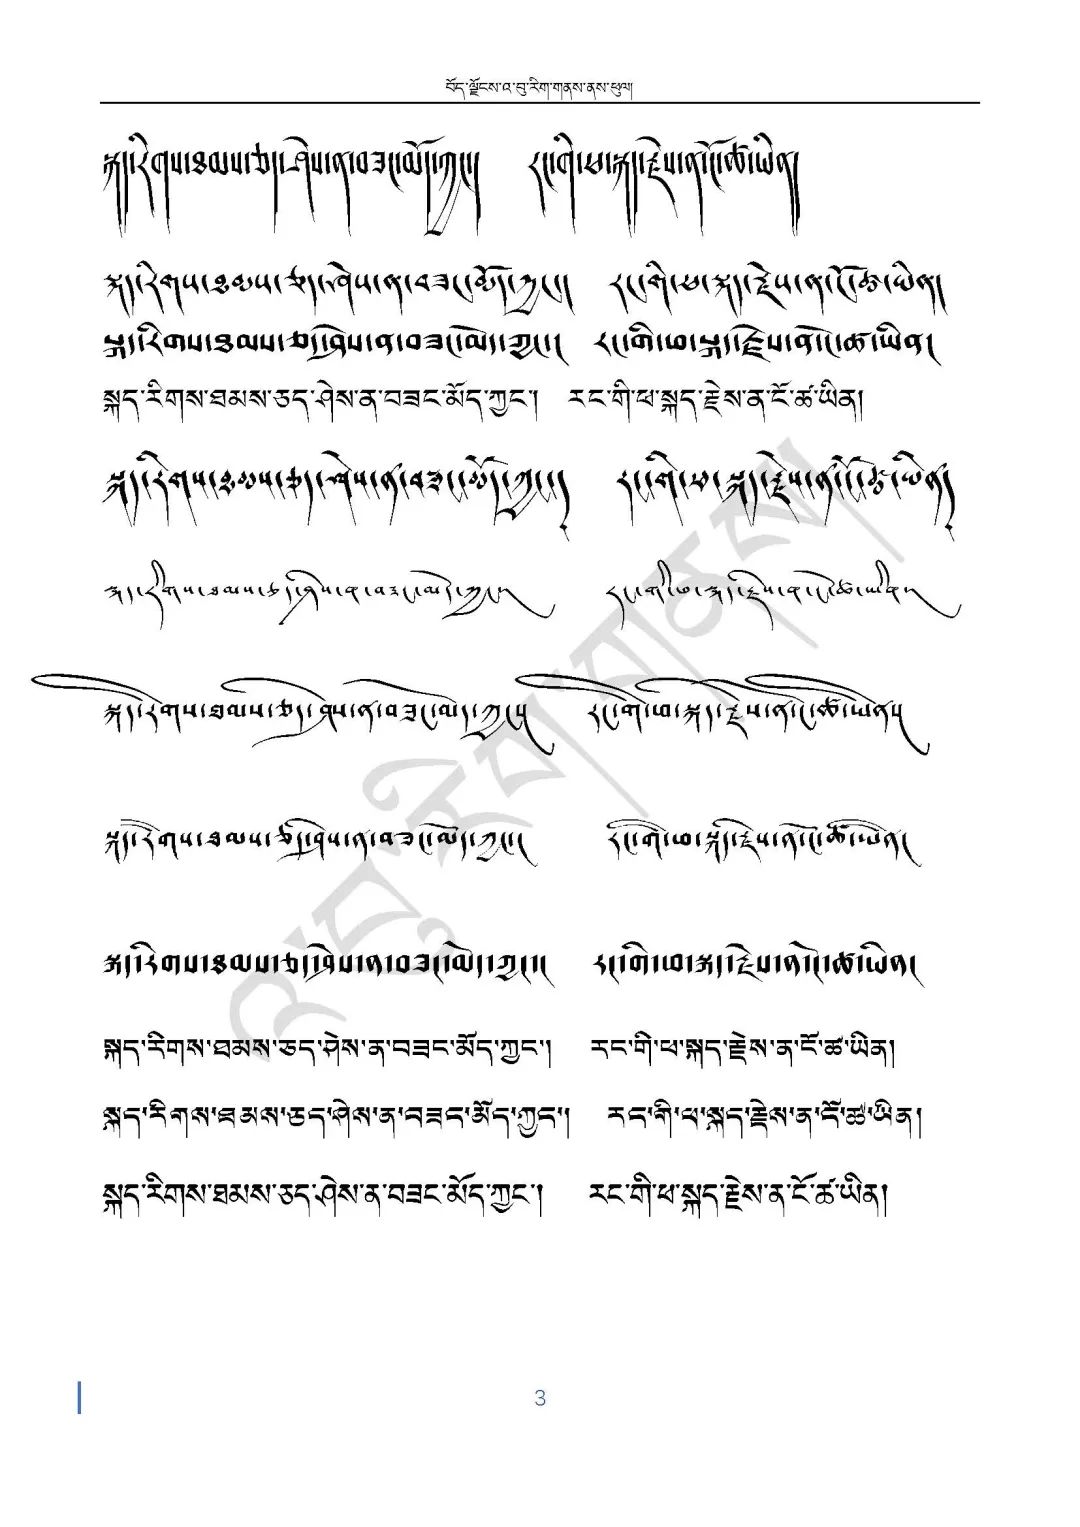 བོད་ལྗོངས་འ་བུ་རིག་གནས་ནས་ཕུལ།
སྐད་རིགས་ཐམས་ཅད་ཤེས་ན་བཟང་མོད་ཀྱང་། རང་གི་ཕ་སྐད་རྗེས་ན་ངོ་ཚ་ཡིན།
སྐད་རིགས་ཐམས་ཅད་ཤེས་ན་བཟང་མོད་ཀྱང་། རང་གི་ཕ་སྐད་རྗེས་ན་ངོ་ཚ་ཡིན།
སྐད་རིགས་ཐམས་ཅད་ཤེས་ན་བཟང་མོད་ཀྱང་། རང་གི་ཕ་སྐད་རྗེས་ན་ངོ་ཚ་ཡིན།
སྐད་རིགས་ཐམས་ཅད་ཤེས་ན་བཟང་མོད་ཀྱང་། རང་གི་ཕ་སྐད་རྗེས་ན་ངོ་ཚ་ཡིན།
སྐད་རིགས་ཐམས་ཅད་ཤེས་ན་བཟང་མོད་ཀྱང་། རང་གི་ཕ་སྐད་རྗེས་ན་ངོ་ཚ་ཡིན།
སྐད་རིགས་ཐམས་ཅད་ཤེས་ན་བཟང་མོད་ཀྱང་། རང་གི་ཕ་སྐད་རྗེས་ན་ངོ་ཚ་ཡིན།
སྐད་རིགས་ཐམས་ཅད་ཤེས་ན་བཟང་མོད་ཀྱང་། རང་གི་ཕ་སྐད་རྗེས་ན་ངོ་ཚ་ཡིན།
སྐད་རིགས་ཐམས་ཅད་ཤེས་ན་བཟང་མོད་ཀྱང་། རང་གི་ཕ་སྐད་རྗེས་ན་ངོ་ཚ་ཡིན།
སྐད་རིགས་ཐམས་ཅད་ཤེས་ན་བཟང་མོད་ཀྱང་། རང་གི་ཕ་སྐད་རྗེས་ན་ངོ་ཚ་ཡིན།
སྐད་རིགས་ཐམས་ཅད་ཤེས་ན་བཟང་མོད་ཀྱང་། རང་གི་ཕ་སྐད་རྗེས་ན་ངོ་ཚ་ཡིན།
སྐད་རིགས་ཐམས་ཅད་ཤེས་ན་བཟང་མོད་ཀྱང་། རང་གི་ཕ་སྐད་རྗེས་ན་ངོ་ཚ་ཡིན།
སྐད་རིགས་ཐམས་ཅད་ཤེས་ན་བཟང་མོད་ཀྱང་། རང་གི་ཕ་སྐད་རྗེས་ན་ངོ་ཚ་ཡིན།
འ་བུ་རིག་གནས།
3